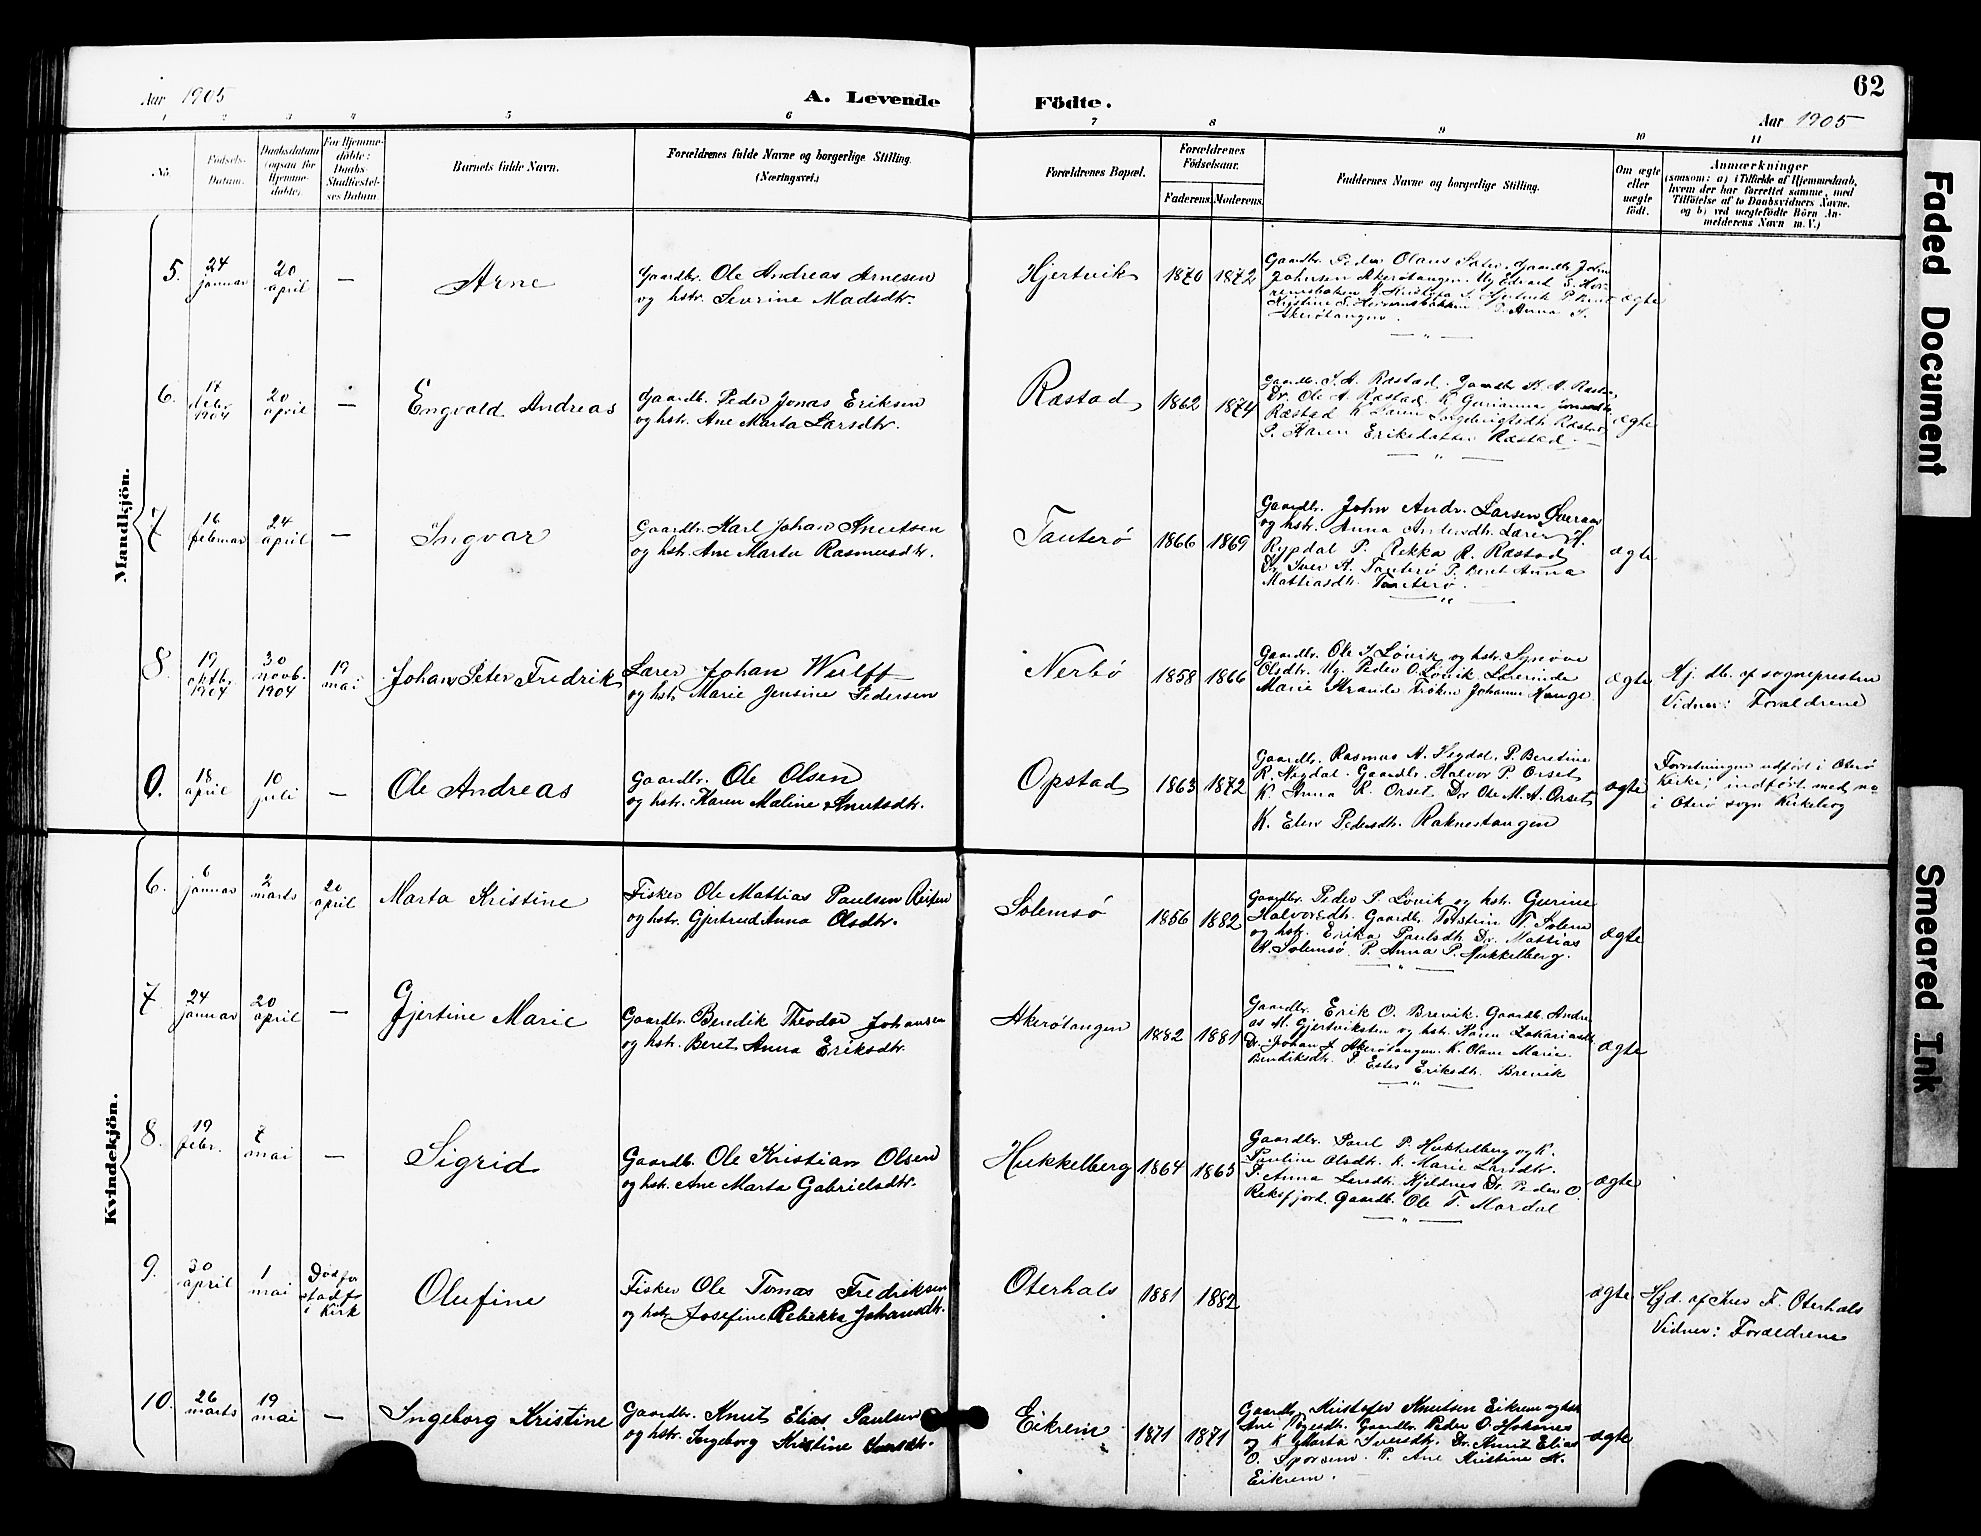 Aar 1905
A. Levende
Födte.
62
Aar 1905
1 2 3 4 5 6 7 8 9 10 11
No.
Födsels-
Datum.
Daabsdatum
(ogsaa for
Hjemme-
döbte).
For Hjemme-
döbte:
Daabs
Stadfæstel-
ses Datum
Barnets fulde Navn.
Forældrenes fulde Navne og borgerlige Stilling.
(Næringsvei.)
Forældrenes Bopæl.
Forældrenes
Födselsaar.
Faderens. Moderens.
Faddernes Navne og borgerlige Stilling.
Om ægte
eller
uægte
födt.
Anmærkninger
(saasom: a) i Tilfælde af Hjemmedaab,
hvem der har forrettet samme, med
Tilföielse af to Daabsvidners Navne,
og b) ved uægtefödte Börn An-
melderens Navn m. V.)
Mandkjön.
5. 24 januar 20 april — Arne
Gaardbr. Ole Andreas Arnesen
og hstr. Sevrine Madsdtr.
Hjertvik 1870 1872
Gaardbr. Peder Olaus Sæter. Gaardbr John
Johnsen Akerötangen. Ug Edvart S.
Kristine S. P. Anna S.
Akerötangen.
ægte
6. 17 debr. 1904 20 april — Engvald Andreas
Gaardb. Peder Jonas Eriksen
og hstr. Ane Marta Larsdtr.
Ræstad 1862 1874
Gaardb. S. A. Ræstad. Gaardbr K. A. Ræstad
Dr. Ole A. Ræstad K Gurianna
Ræstad K Ingebrigtsdt. Ræstad
P. Karen Eriksdatter Ræstad.
ægte
7 16 februar 24 april — Ingvar
Gaardbr. Karl Johan Knutsen
og hstr. Ane Marta Rasmusdtr.
Tauterö 1866 1869
Gaardbr. John Andr. Larsen
og hstr. Anna Andersdtr. Lærer H.
Rypdal P. Rekka R. Ræstad
Dr. Iver K. Tauterö P. Beret Anna
Mathiasdtr. Tauterö.
ægte
8. 19 oktbr. 1904 30 novb. 1904 19 mai Johan Peter Fredrik
Lærer Johan Wulff
og hstr Marie Jensine Pedersen
Nerbö 1858 1866
Gaardbr. Ole I. Lövik og hstr. Synöve
Olsdtr. Ug. Peder O. Lövik Lærerinde
Marie Strande Fröken Johanne Hauge
ægte
Hj. db. af sognepresten
Vidner: Forældrene
0. 18 april 10 juli — Ole Andreas
Gaardbr. Ole Olsen
og hstr. Karen Maline Knutsdtr.
Opstad 1863 1872
Gaardbr. Rasmus A. Hegdal. P. Beretine
R. Hegdal. Gaardbr. Halvor P. Orset
K Anna R. Orset. Dr Ole M. A. Orset
K. Elen Pedersdtr. Raknestangen
ægte
Forretningen udfört i Oterö
Kirke; indfört med no
i Oterö sogn Kirkebog
Kvindekjön.
6. 6 januar 2 marts 20 april Marta Kristine
Fisker Ole Mattias Paulsen
og hstr Gjertrud Anna Olsdtr.
Solemsö 1856 1882
Gaardbr. Peder P. Lövik og hstr. Gurine
Halvorsdtr. Gaardbr. Torstein T. Solem
og hstr. Erika Paulsdtr. Dr. Mattias
K. Solemsö. P. Anna P. Hukkelberg.
ægte
7. 24 januar 20 april — Gjertine Marie
Gaardbr. Bendik Theodor Johansen
og hstr. Beret Anna Eriksdtr.
Akerötangen 1882 1881
Gaardbr. Erik O. Brevik. Gaardb. Andre-
as M. Gjertviksten og hstr. Karen
Dr. Johan J Akerötangen. K. Olave Marie
Bendiksdtr. P. Ester Eriksdtr. Brevik
ægte
8. 19 febr. 7 mai — Sigrid
Gaardb. Ole Kristian Olsen
og hstr. Ane Marta Gabrielsdtr.
Hukkelberg 1864 1865
Gaardbr. Paul P. Hukkelberg og K.
Pauline Olsdtr. K. Marie Larsdtr.
P. Anna Larsdtr. Kjeldnes Dr. Peder O.
Reksfjord. Gaardb. Ole T. Mordal
ægte
9. 30 april 1 mai Död för stadf. i Kirk Olufine
Fisker Ole Tomas Fredriksen
og hstr. Josefine Rebekka Johansdtr.
Oterhals 1881 1882
ægte
Hjd. af Iver F. Oterhals
Vidner: Forældrene
10. 26 marts 19 mai — Ingeborg Kristine
Gaardbr. Knut Elias Paulsen
og hstr. Ingeborg Kristine Iversdtr.
Eikrem 1871 1871
Gaardbr. Kristofer Knutsen Eikrem og hstr
Ane Gaardbr. Peder O. Hoknes
og K Marta Iversdtr. Dr. Knut Elias
O. Sporsem. P. Ane Kristine K.
Eikrem.
ægte
Faded Document
Smeared Ink